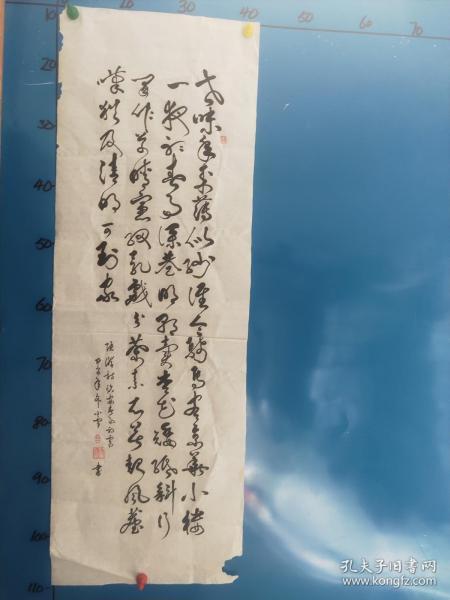 10 20 30 40 50 60 70
世味年来薄似紗谁令騎馬客京華小楼
一夜听春雨深巷明朝賣杏花矮紙斜行
閑作草晴窗細乳戲分茶素衣莫起風塵
嘆猶及清明可到家
陸游诗临安春雨初霁
書
20
30
40
50
60
70
80
90
100
110
孔夫子旧书网
www.kongfz.com